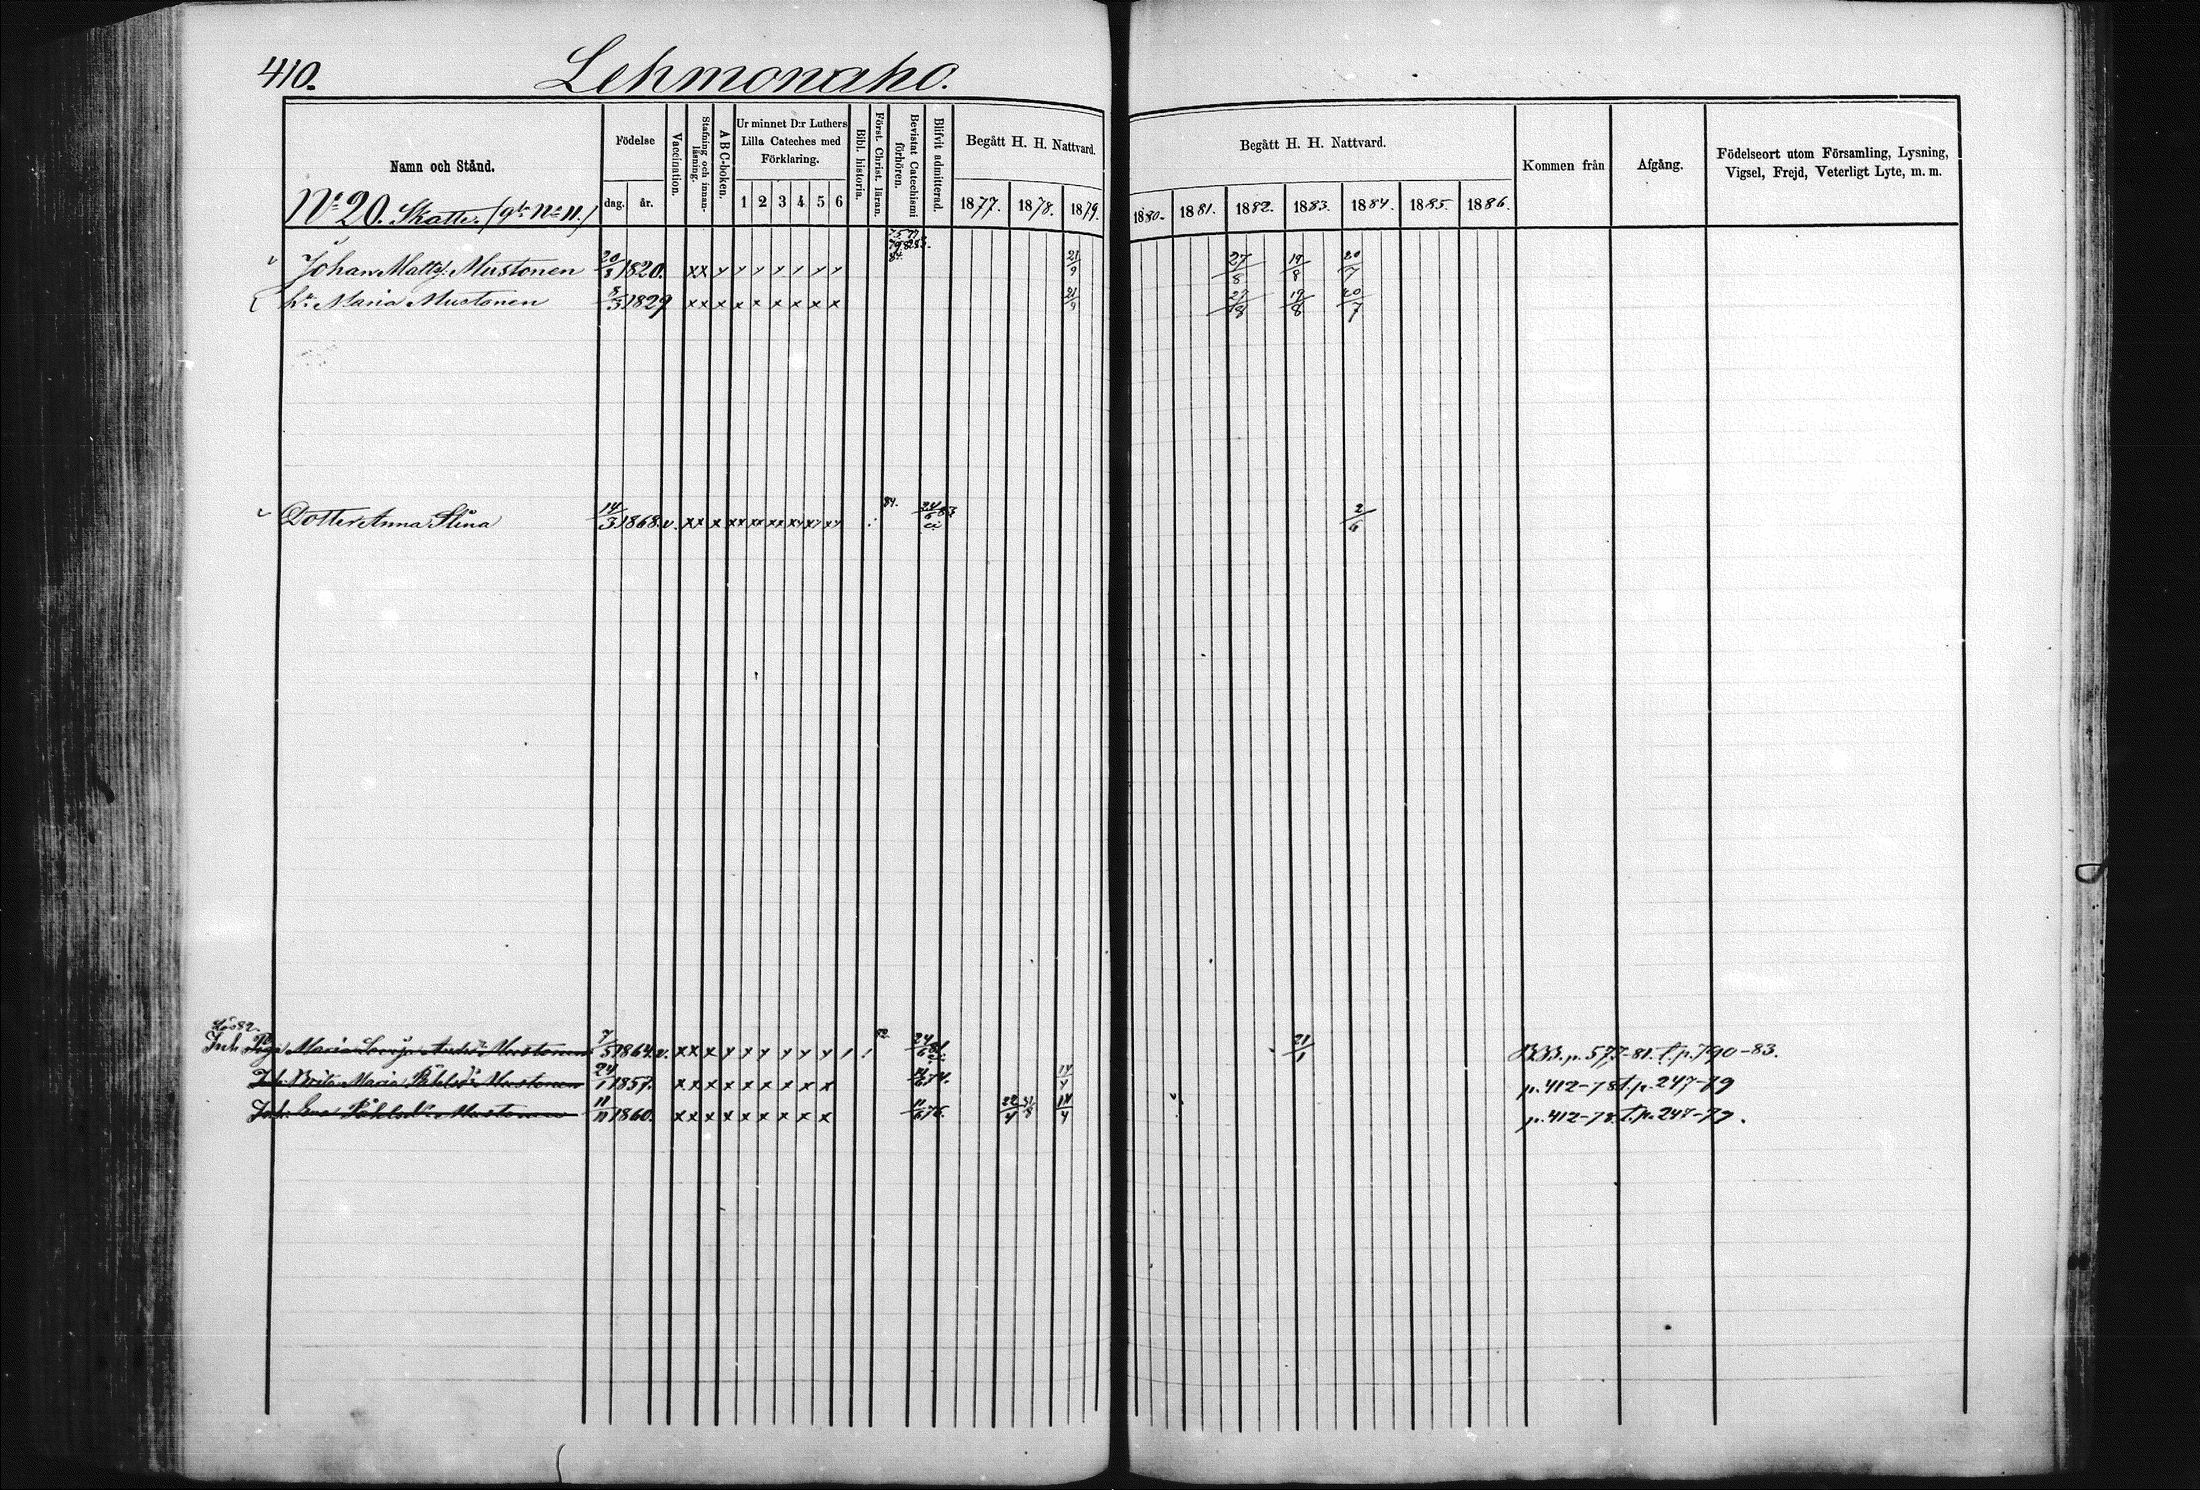 410.
Lehmonaho.
Namn och Stånd.
Födelse
dag.
år.
Vaccination.
Stafning och innanläsning.
A B C-boken.
Ur minnet D:r Luthers Lilla Cateches med Förklaring.
1 2 3 4 5 6
Bibl. historia.
Först. Christ. läran.
Bevistat Catechismi förhören.
Blifvit admitterad.
Begått H. H. Nattvard.
1877. 1878. 1879.
Begått H. H. Nattvard.
1880. 1881. 1882. 1883. 1884. 1885. 1886.
Kommen från
Afgång.
Födelseort utom Församling, Lysning, Vigsel, Frejd, Veterligt Lyte, m. m.
No 20. Skatte.
Johan Matts. Mustonen 20/3 1820. xx x x x x x x x 21/9 27/8 19/8 20/7
h. Maria Mustonen 8/3 1829 xx x x x x x x x 21/9 27/8 19/8 20/7
Dotter Anna Stina 14/3 1868. v. xx x xx xx xx xx xx xx 84. 24/6 83 2/6
Inh. Maria Mustonen 7/5 1864. v. xx x x x x x x x 82. 24/6 81 21/1 p. 577-81. t. p. 790-83.
Inh. Brita Maria Mustonen 24/1 1857. x x x x x x x x x 74. 14/4 p. 412-78 t. p. 247-79
Inh. Eva Mustonen 11/11 1860. x x x x x x x x x 11/6 76. 22/4 14/4 p. 412-78. t. p. 247-79.